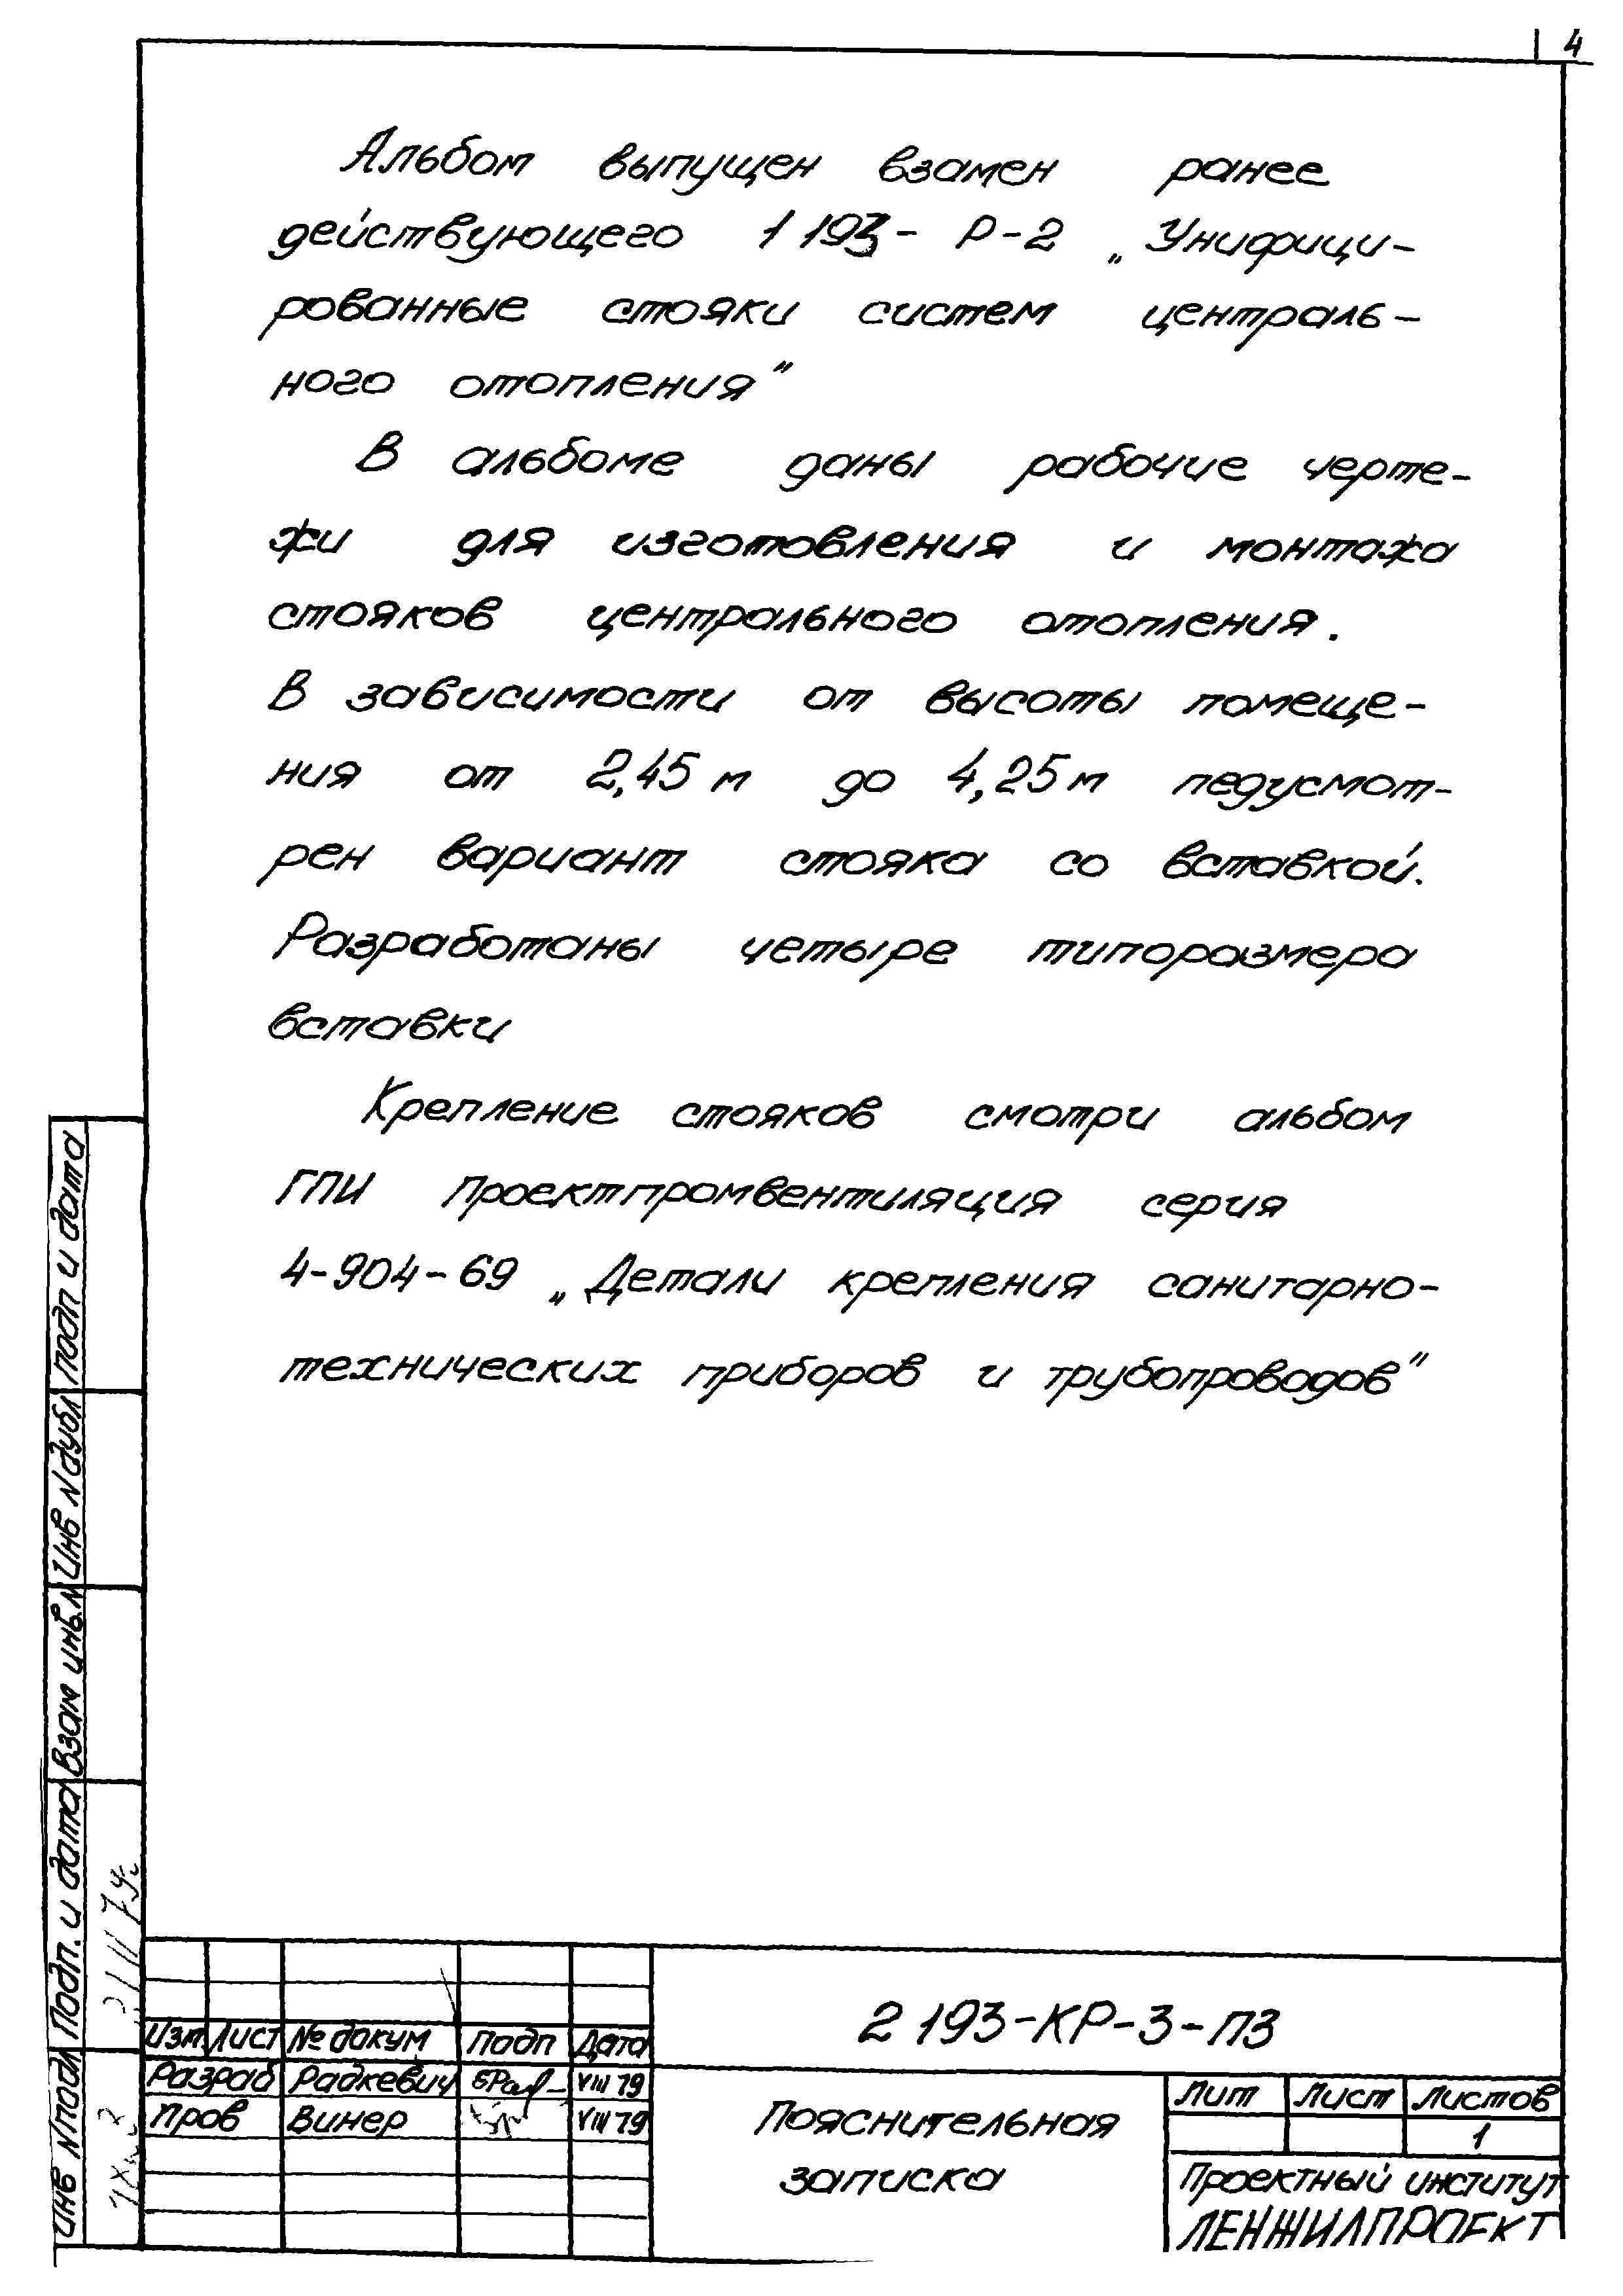 4
Альбом выпущен взамен ранее
действующего 1 193- Р-2 „Унифици-
рованные стояки систем централь-
ного отопления"
В альбоме даны рабочие черте-
жи для изготовления и монтажа
стояков центрального отопления.
В зависимости от высоты помеще-
ния от 2,45 м до 4,25 м педусмот-
рен вариант стояка со вставкой.
Разработаны четыре типоразмера
вставки
Крепление стояков смотри альбом
ГПИ Проектпромвентиляция серия
4-904-69 „Детали крепления санитарно-
технических приборов и трубопроводов"
Подп и дата
Инв N дубл
Взам инв. N
Подп. и дата
Инв N подл
Изм Лист № докум Подп Дата
Разраб Радкевич VIII 79
Пров Винер VIII 79
2 193-КР-3-ПЗ
Пояснительная
записка
Лит Лист Листов
1
Проектный институт
ЛЕНЖИЛПРОЕКТ